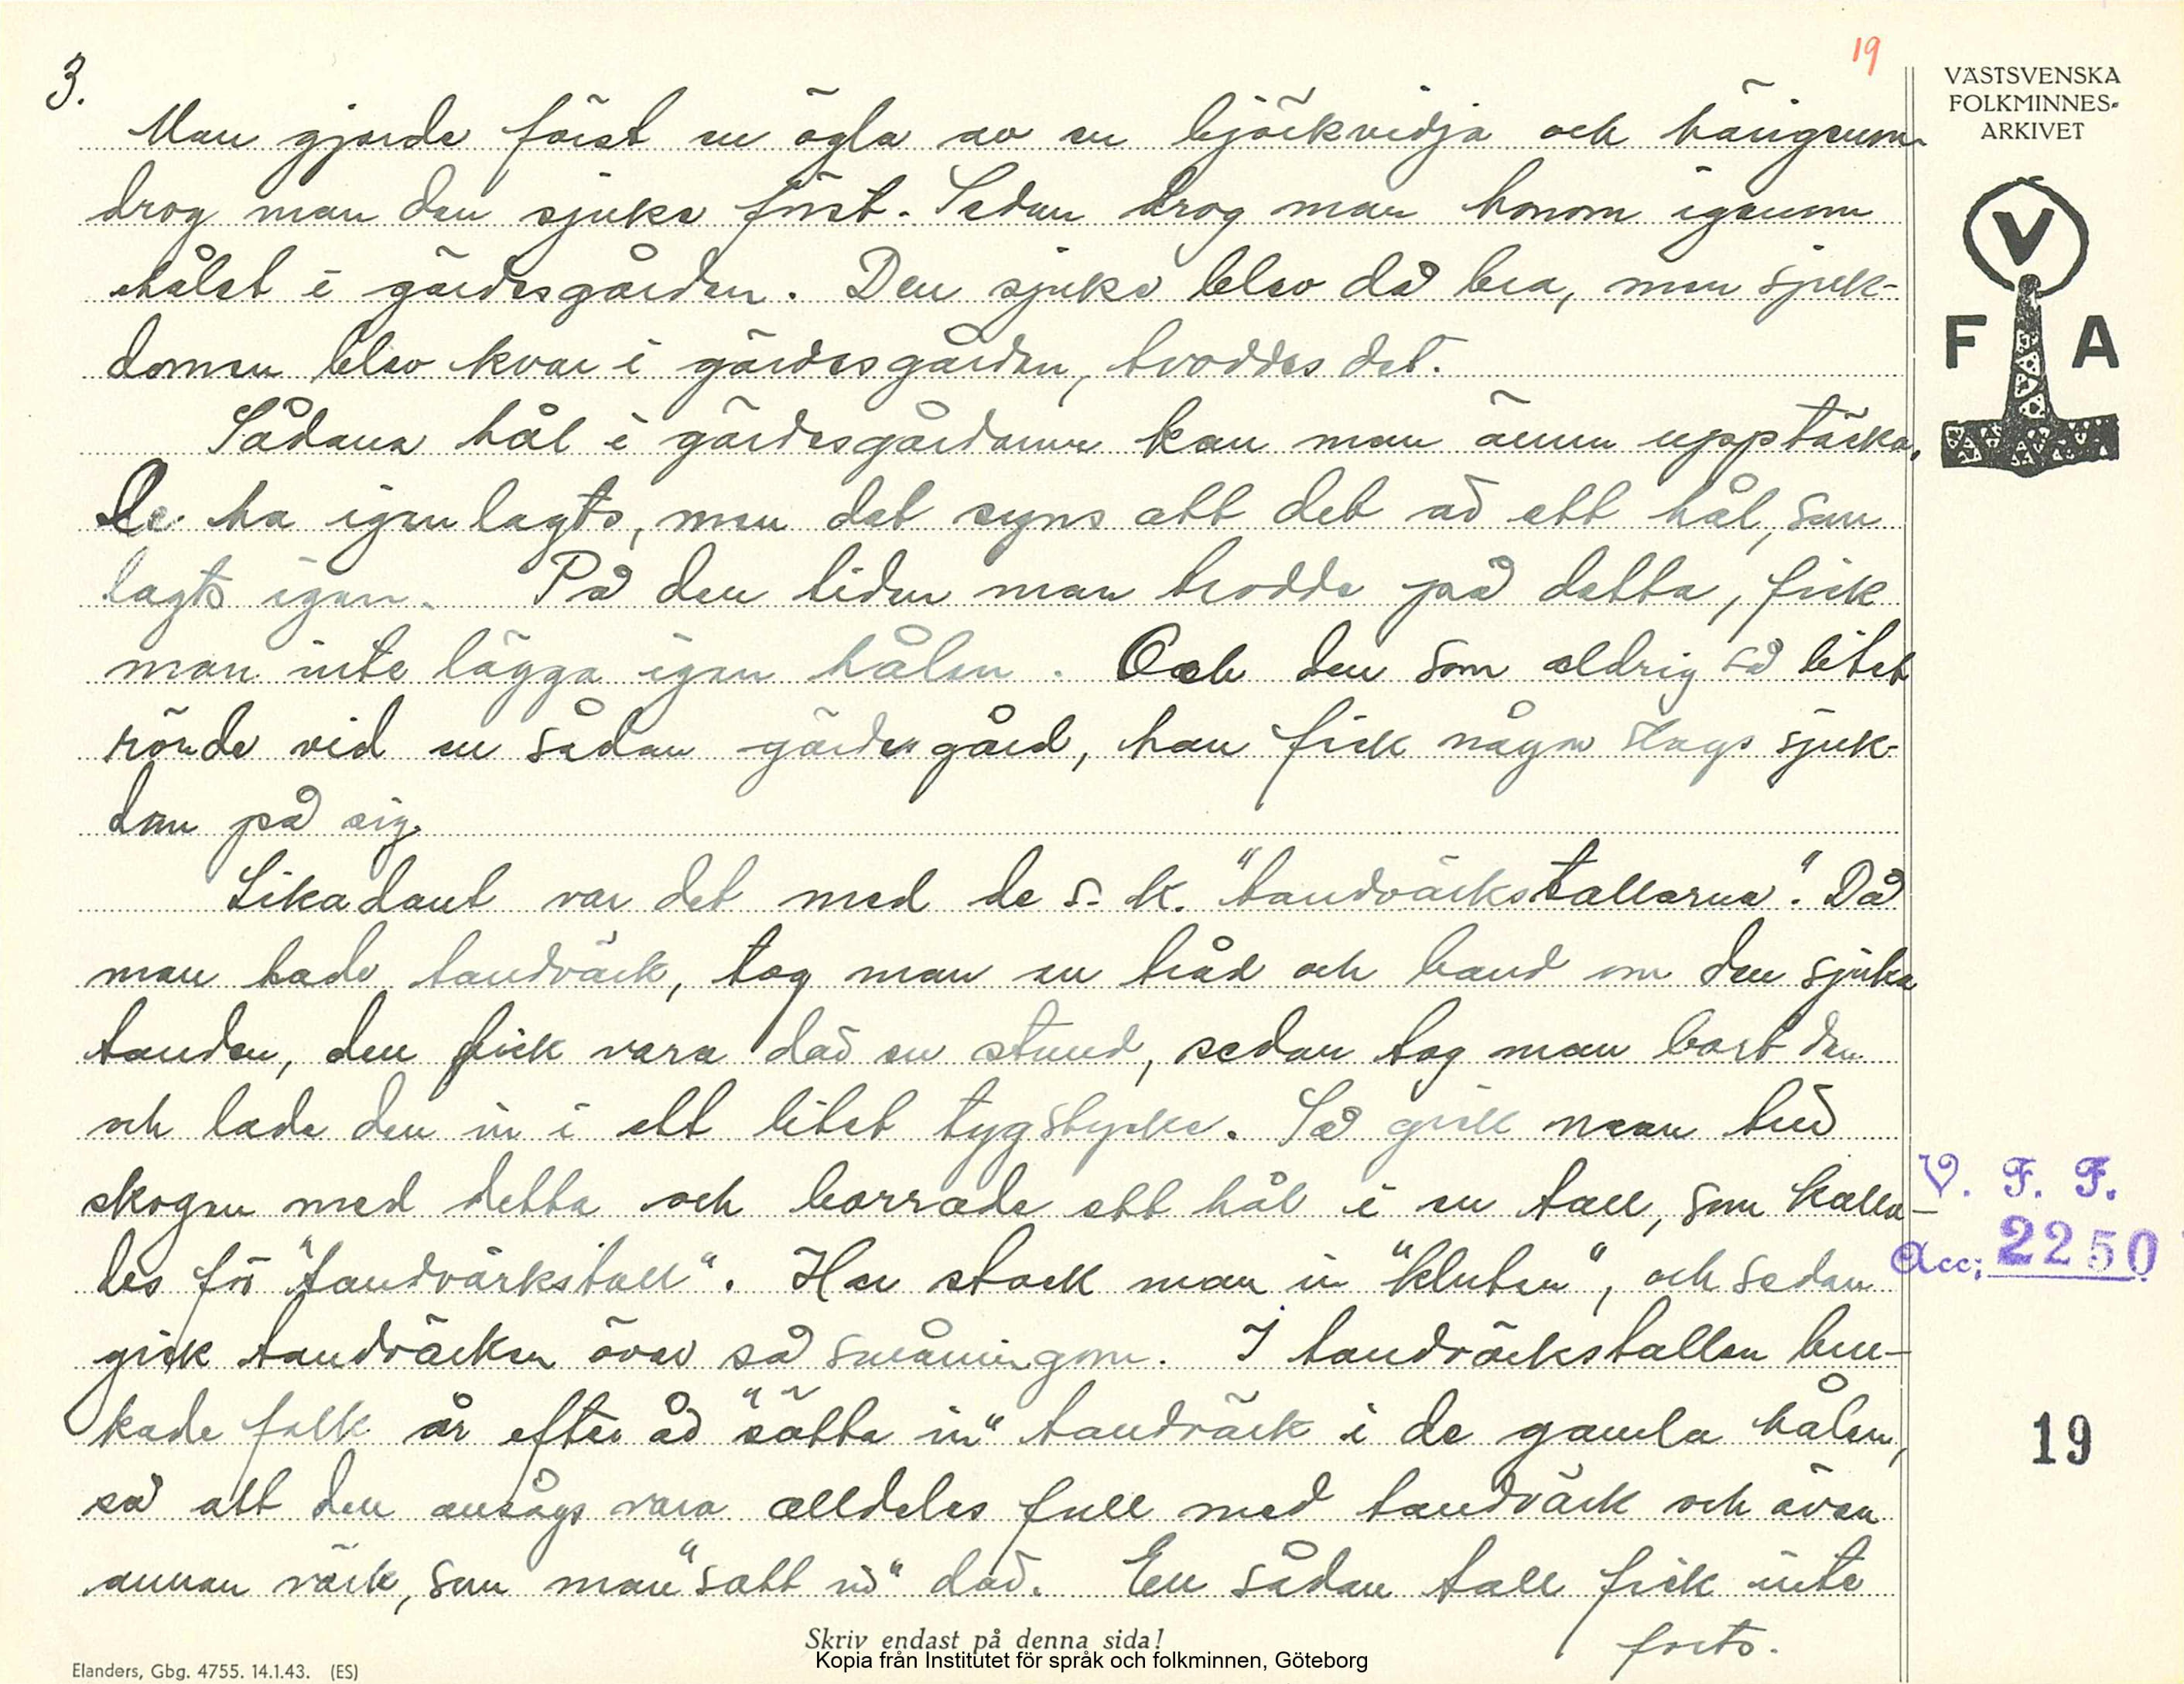 19
3.
VÄSTSVENSKA
FOLKMINNES-
ARKIVET
V
F A
Man gjorde först en ögla av en björkvidja och härigenom
drog man den sjuke först. Sedan drog man honom igenom
hålet i gärdesgården. Den sjuke blev då bra, men sjuk-
domen blev kvar i gärdesgården, troddes det.
Sådana hål i gärdesgårdarna kan man ännu upptäcka,
De ha igenlagts, men det syns att det är ett hål, som
lagts igen. På den tiden man trodde på detta, fick
man inte lägga igen hålen. Och den som aldrig så litet
rörde vid en sådan gärdesgård, han fick någon slags sjuk-
dom på sig.
Likadant var det med de s. k. "tandvärkstallarna". Då
man hade tandvärk, tog man en tråd och band om den sjuka
tanden, den fick vara där en stund, sedan tog man bort den
och lade den in i ett litet tygstycke. Så gick man till
skogen med detta och borrade ett hål i en tall, som kalla-
des för "tandvärkstall". Här stack man in "kluten", och sedan
gick tandvärken över så småningom. I tandvärkstallen bru-
kade folk år efter år "sätta in" tandvärk i de gamla hålen,
så att den ansågs vara alldeles full med tandvärk och även
annan värk, som man "satt in" där. En sådan tall fick inte
forts.
V. F. F.
Acc; 2250
19
Skriv endast på denna sida!
Kopia från Institutet för språk och folkminnen, Göteborg
Elanders, Gbg. 4755. 14.1.43. (ES)